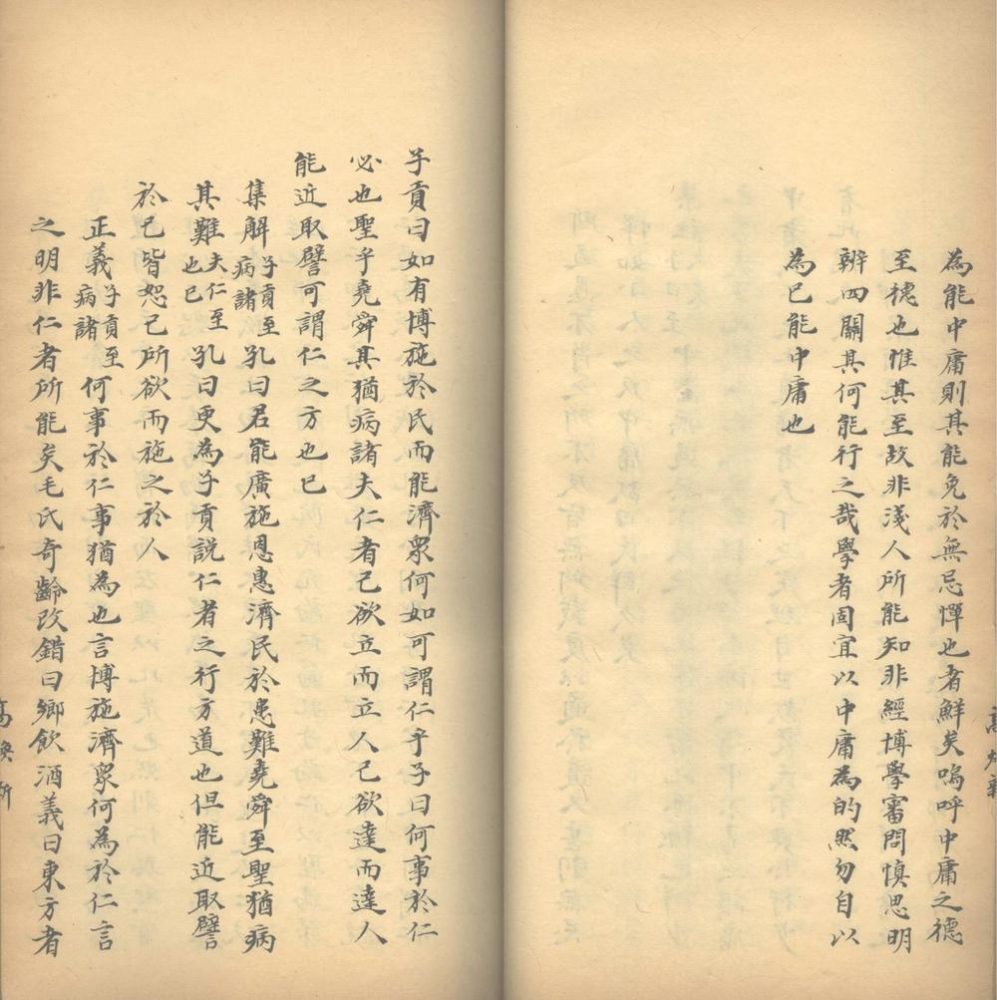 為能中庸則其能免於無忌憚也者鮮矣嗚呼中庸之德
至德也惟其至故非淺人所能知非經博學審問慎思明
辨四關其何能行之哉學者固宜以中庸為的然勿自以
為已能中庸也
子貢曰如有博施於民而能濟眾何如可謂仁乎子曰何事於仁
必也聖乎堯舜其猶病諸夫仁者己欲立而立人己欲達而達人
能近取譬可謂仁之方也已
集解子貢至病諸孔曰君能廣施恩惠濟民於患難堯舜至聖猶病
其難夫仁至也已孔曰更為子貢說仁者之行方道也但能近取譬
於己皆恕己所欲而施之於人
正義子貢至病諸何事於仁事猶為也言博施濟眾何為於仁言
之明非仁者所能矣毛氏奇齡改錯曰鄉飲酒義曰東方者